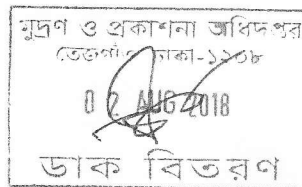 মুদ্রণ ও প্রকাশনা অধিদপ্তর
তেজগাঁও, ঢাকা-১২০৮
0 2 AUG 2018
ডাক বিতরণ